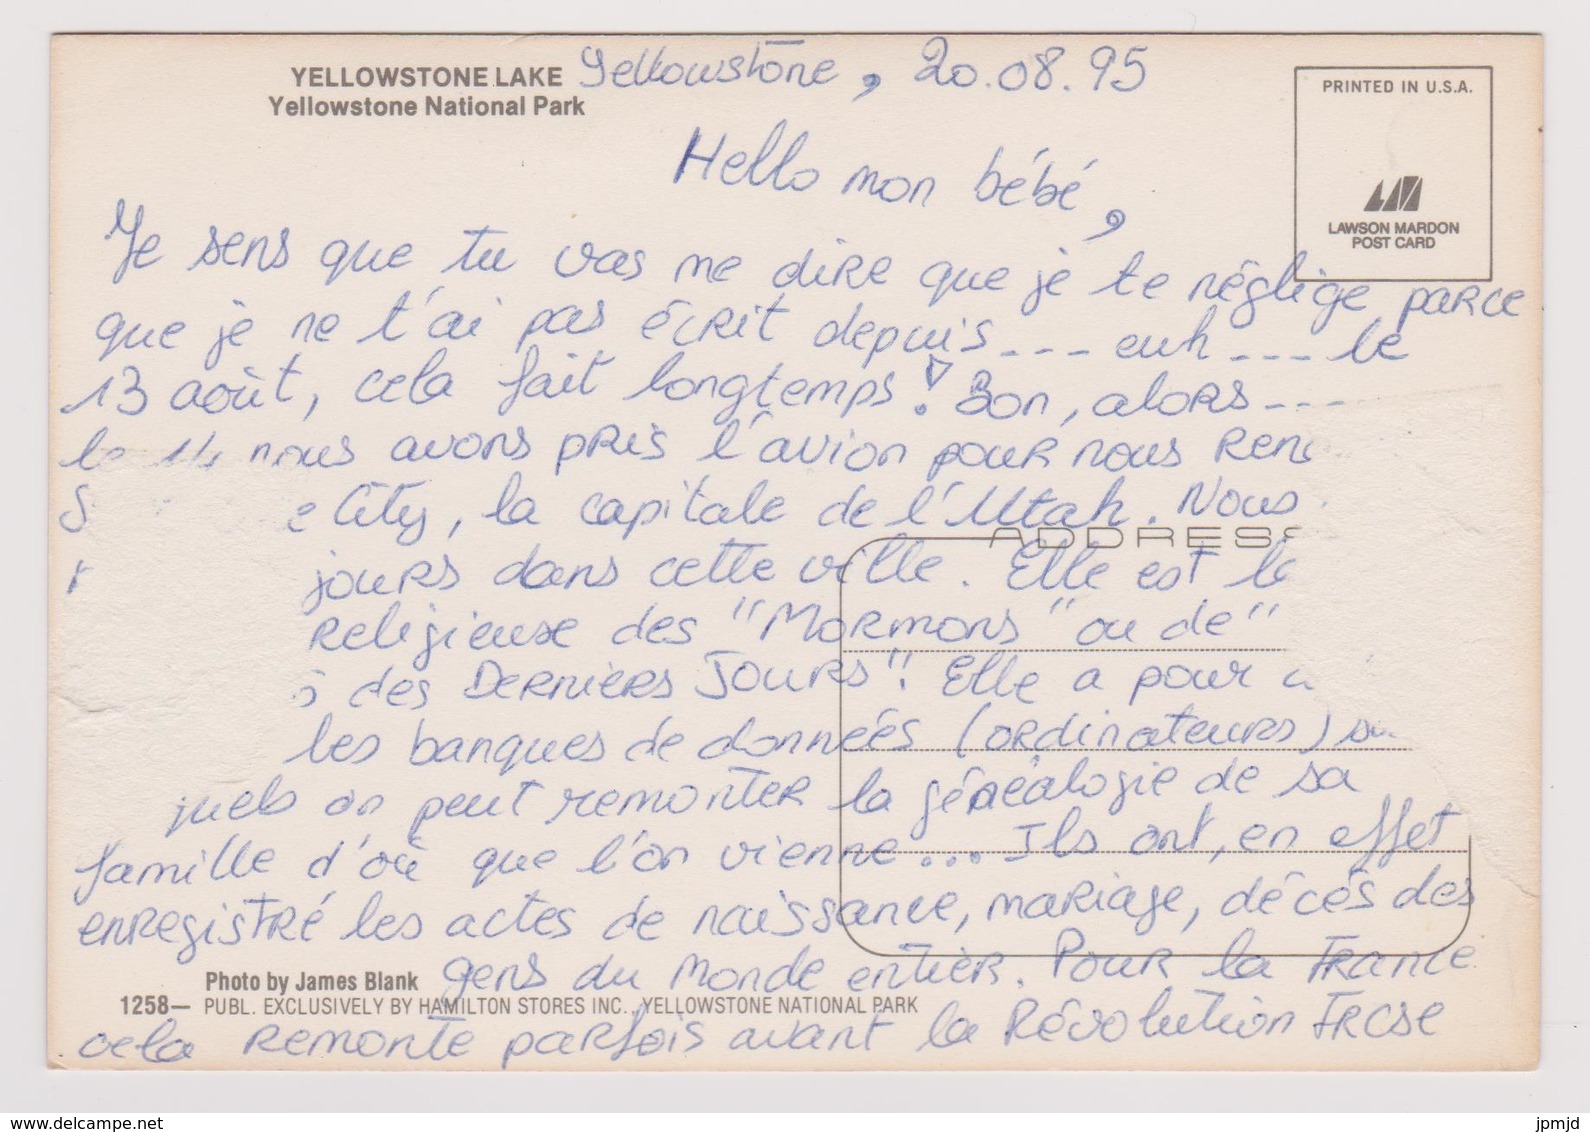 YELLOWSTONE LAKE
Yellowstone National Park
Yellowstone, 20.08.95
PRINTED IN U.S.A.
LAWSON MARDON
POST CARD
Hello mon bébé,
Je sens que tu vas me dire que je te néglige parce
que je ne t'ai pas écrit depuis --- euh --- le
13 août, cela fait longtemps! Bon, alors ---
le 14 nous avons pris l'avion pour nous
City, la capitale de l'Utah. Nous
ADDRESS
jours dans cette ville. Elle est
religieuse des "Mormons" ou de "
des Derniers Jours". Elle a pour
les banques de données (ordinateurs)
on peut remonter la généalogie de sa
famille d'où que l'on vienne... Ils ont, en effet
enregistré les actes de naissance, mariage, décès des
gens du monde entier. Pour la France
Photo by James Blank
1258— PUBL. EXCLUSIVELY BY HAMILTON STORES INC., YELLOWSTONE NATIONAL PARK
cela remonte parfois avant la Révolution Frçse
www.delcampe.net
jpmjd